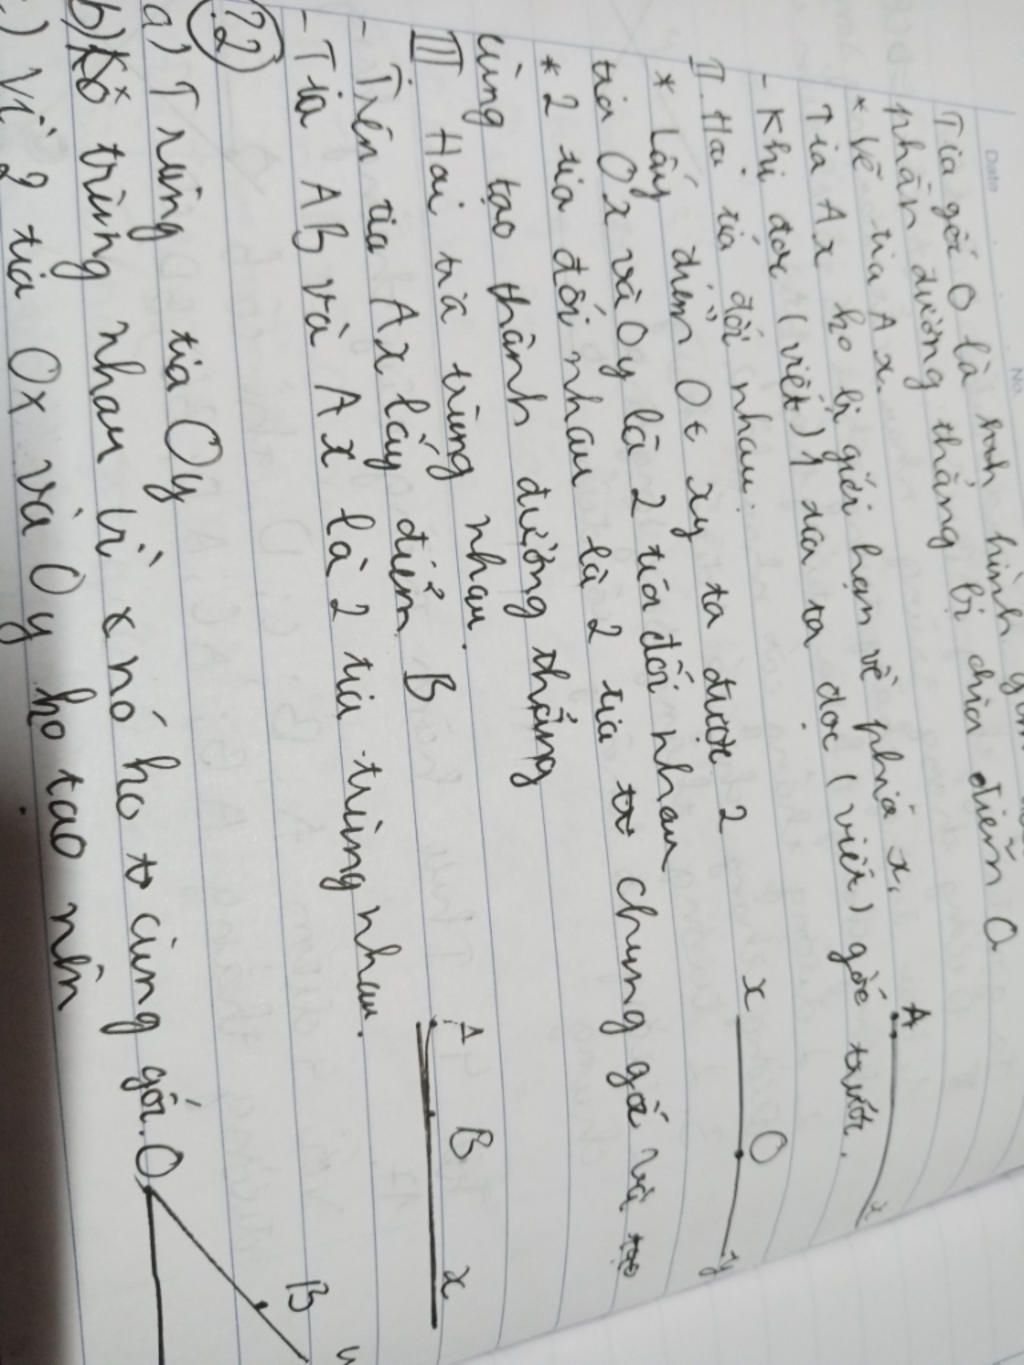 Date
No.
Tia gốc O là hình hình
phần đường thẳng bị chia điểm O
* Vẽ tia Ax.
A
x
Tia Ax ko bị giới hạn về phía x.
- Khi đọc (viết) 1 tia ta đọc (viết) gốc trước.
II. Hai tia đối nhau:
x O y
* Lấy điểm O ∈ xy ta được 2
tia Ox và Oy là 2 tia đối nhau
* 2 tia đối nhau là 2 tia chung gốc và tạo
cùng tạo thành đường thẳng
III Hai tia trùng nhau.
A B x
- Trên tia Ax lấy điểm B
- Tia AB và Ax là 2 tia trùng nhau.
?2
B
a) Trùng tia Oy
b) Ko trùng nhau vì x nó ko cùng gốc.
O
c) Vì 2 tia Ox và Oy ko tạo nên